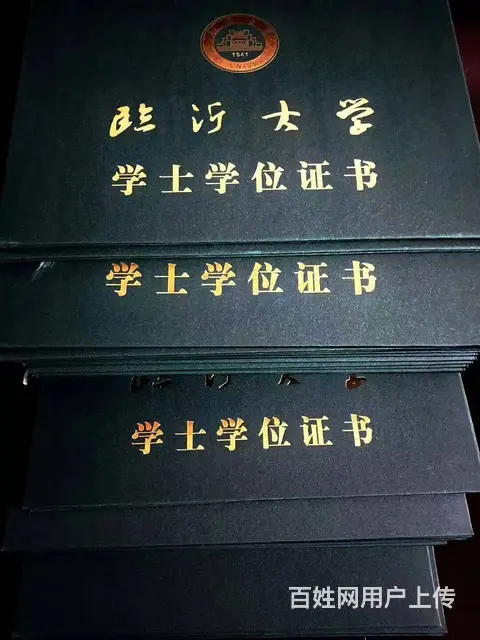 1941
临沂大学
学士学位证书
学士学位证书
学士学位证书
百姓网用户上传